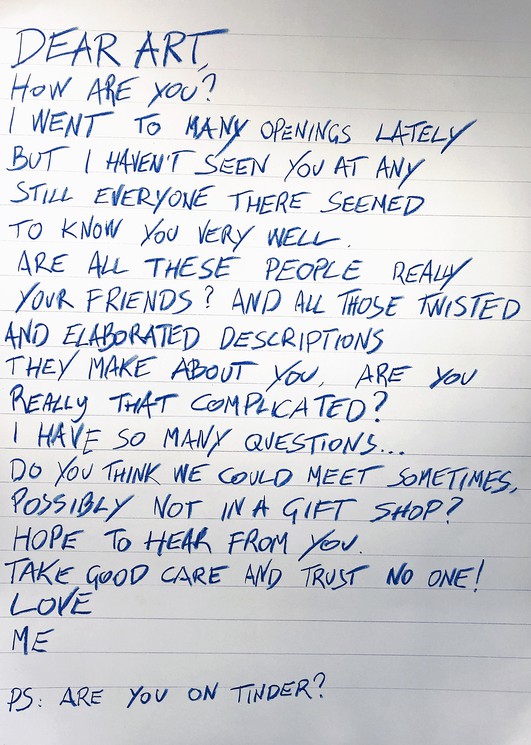 DEAR ART,
HOW ARE YOU?
I WENT TO MANY OPENINGS LATELY
BUT I HAVEN'T SEEN YOU AT ANY
STILL EVERYONE THERE SEEMED
TO KNOW YOU VERY WELL.
ARE ALL THESE PEOPLE REALLY
YOUR FRIENDS? AND ALL THOSE TWISTED
AND ELABORATED DESCRIPTIONS
THEY MAKE ABOUT YOU, ARE YOU
REALLY THAT COMPLICATED?
I HAVE SO MANY QUESTIONS...
DO YOU THINK WE COULD MEET SOMETIMES,
POSSIBLY NOT IN A GIFT SHOP?
HOPE TO HEAR FROM YOU.
TAKE GOOD CARE AND TRUST NO ONE!
LOVE
ME
PS: ARE YOU ON TINDER?